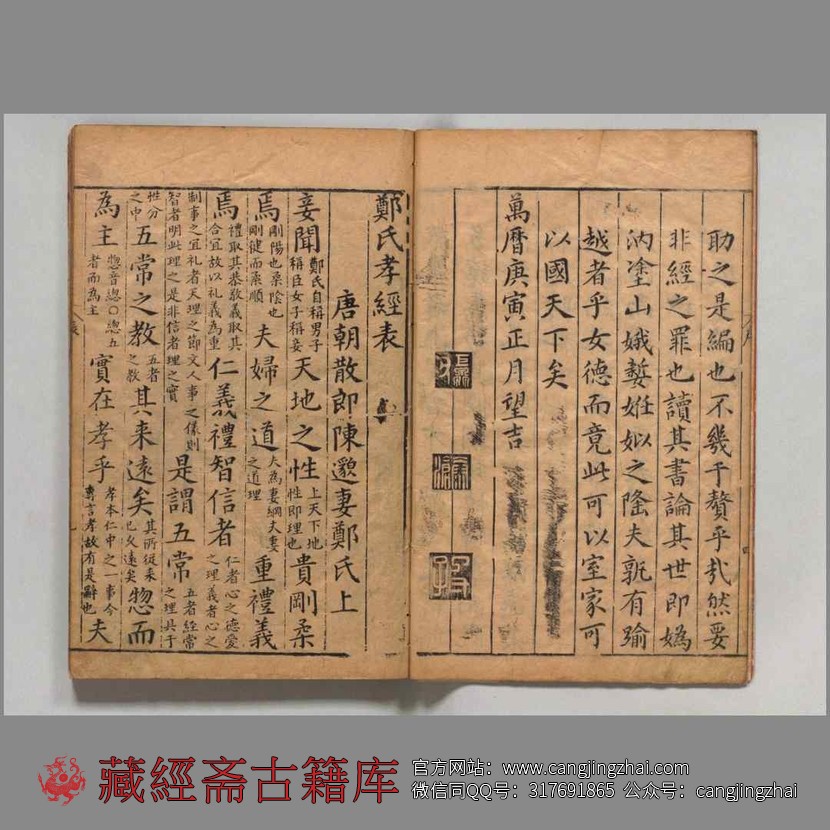 助之是編也不幾于贅乎㢤然要
非經之罪也讀其書論其世即媯
汭塗山娥嫛姙姒之隆夫孰有踰
越者乎女德而竟此可以室家可
以國天下矣
萬曆庚寅正月望吉
鄭氏孝經表
唐朝散郎陳邈妻鄭氏上
妾聞鄭氏自稱男子稱臣女子稱妾天地之性上天下地性即理也貴剛柔
焉剛陽也柔陰也剛健而柔順夫婦之道夫為妻綱夫妻之道理重禮義
焉禮取其恭敬義取其合宜故以礼義為重仁義禮智信者仁者心之德愛之理義者心之
制事之宜礼者天理之節文人事之儀則智者明此理之是非信者理之實是謂五常五者經常之理具于
性分之中五常之教五者之教其来遠矣其所従来也久遠矣惣而
為主惣音總○惣五者而為主實在孝乎孝本仁中之一事今專言孝故有是辭也夫
藏經斋古籍库
官方网站：www.cangjingzhai.com
微信同QQ号：317691865 公众号：cangjingzhai